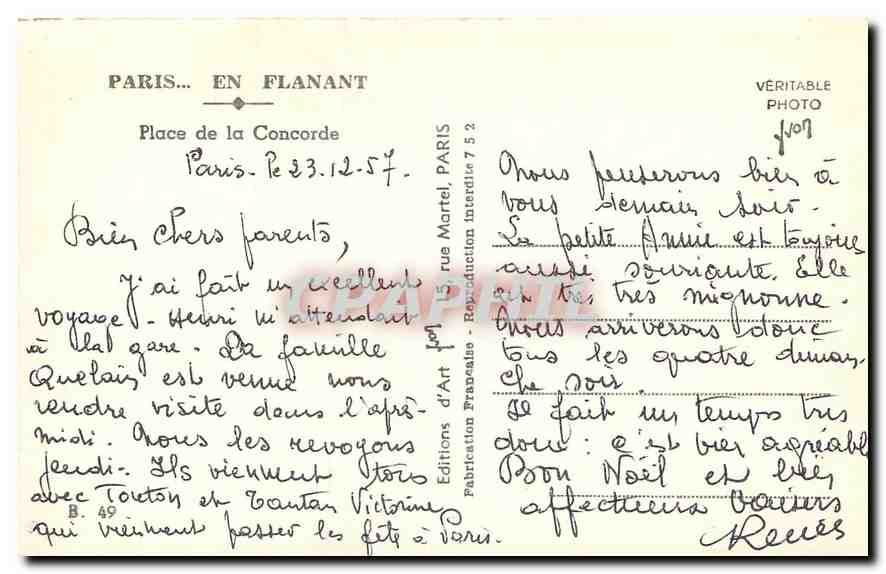 PARIS... EN FLANANT
Place de la Concorde
Paris - le 23.12-57.
Bien chers parents,
J'ai fait un excellent
voyage - Henri m'attendait
à la gare. La famille
Quelain est venue nous
rendre visite dans l'après-
midi. Nous les revoyons
jeudi-. Ils viennent tous
avec Tonton et Tantan Victorine
qui viennent passer les fête à Paris.
B. 49
Editions d'Art yvon 15, rue Martel, PARIS
Fabrication Française - Reproduction Interdite 752
VÉRITABLE
PHOTO
yvon
Nous penserons bien à
vous demain soir.
La petite Annie est toujours
aussi souriante. Elle
est très très mignonne.
Nous arriverons donc
tous les quatre diman-
che soir.
Il fait un temps très
doux : c'est bien agréable
Bon Noël et bien
affectueux baisers
Renée
CPAPHIL